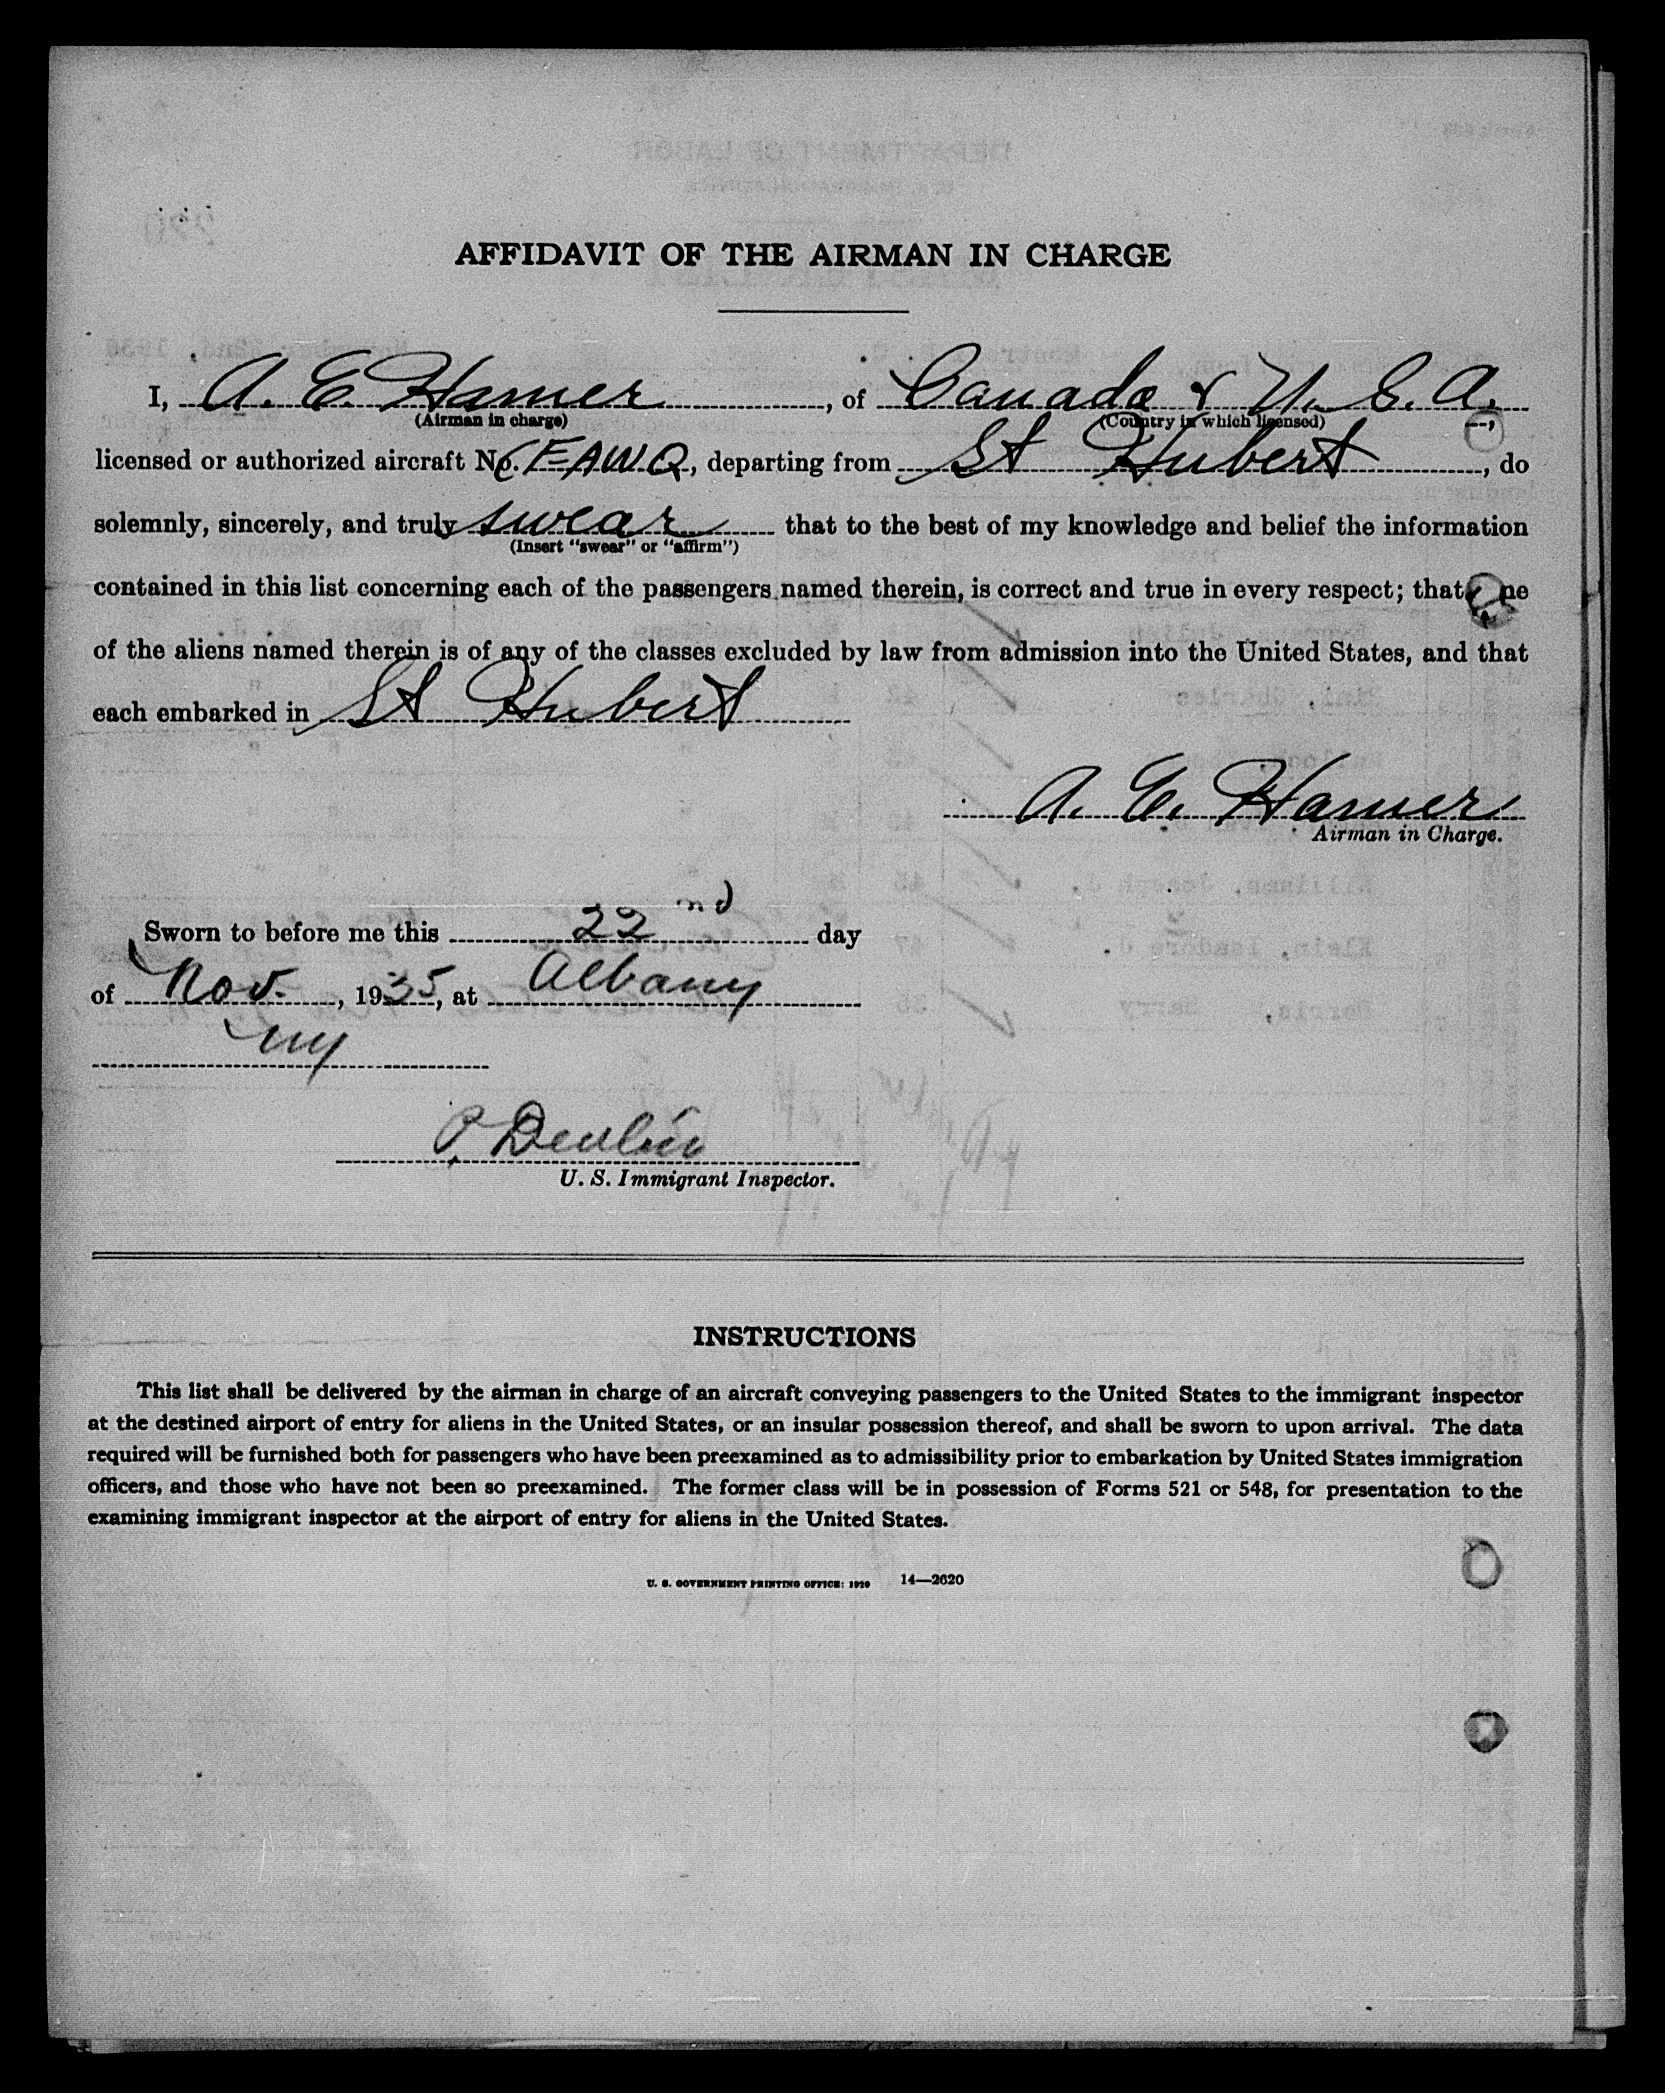 AFFIDAVIT OF THE AIRMAN IN CHARGE
I, A. E. Hamer, of Canada & U. S. A.,
(Airman in charge) (Country in which licensed)
licensed or authorized aircraft No. CFAWQ, departing from St Hubert, do
solemnly, sincerely, and truly swear that to the best of my knowledge and belief the information
(Insert "swear" or "affirm")
contained in this list concerning each of the passengers named therein, is correct and true in every respect; that
of the aliens named therein is of any of the classes excluded by law from admission into the United States, and that
each embarked in St Hubert
A. E. Hamer
Airman in Charge.
Sworn to before me this 22nd day
of Nov., 1935, at Albany
NY
P. Devlin
U. S. Immigrant Inspector.
INSTRUCTIONS
This list shall be delivered by the airman in charge of an aircraft conveying passengers to the United States to the immigrant inspector
at the destined airport of entry for aliens in the United States, or an insular possession thereof, and shall be sworn to upon arrival. The data
required will be furnished both for passengers who have been preexamined as to admissibility prior to embarkation by United States immigration
officers, and those who have not been so preexamined. The former class will be in possession of Forms 521 or 548, for presentation to the
examining immigrant inspector at the airport of entry for aliens in the United States.
U. S. GOVERNMENT PRINTING OFFICE: 1929 14—2620